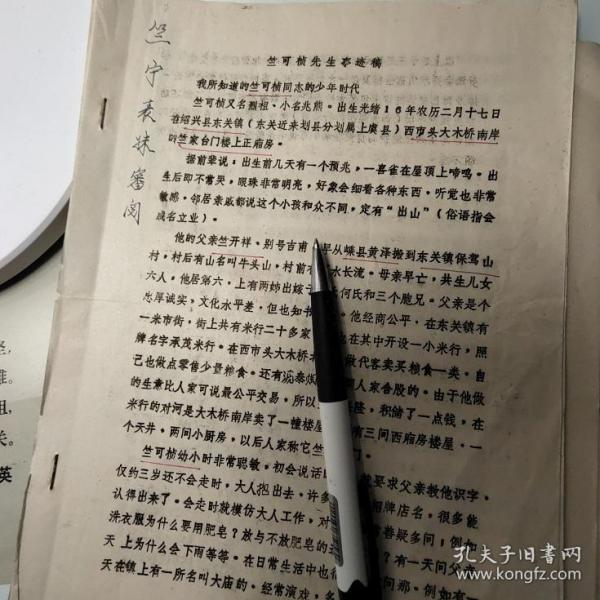 竺宁表妹审阅
竺可桢先生事迹稿
我所知道的竺可桢同志的少年时代
竺可桢又名烈祖·小名兆熊·出生光绪16年农历二月十七日
在绍兴县东关镇(东关近来划县分划属上虞县)西市头大木桥南岸
的竺家台门楼上正厢房·
据前辈说:出生前几天有一个预兆,一喜雀在屋顶上啼鸣·出
生后即不常哭,眼珠非常明亮,好象会细看各种东西·听觉也非常
敏感·邻居亲戚都说这个小孩和众不同,定有“出山”(俗语指会
成名立业)·
他的父亲竺开祥·别号吉甫 早从嵊县黄泽搬到东关镇保驾山
村,村后有山名叫牛头山,村前 水长流·母亲早亡,共生儿女
六人,他居第六,上有两姊出嫁 何氏和三个胞兄·父亲是个
忠厚诚实,文化水平差·但也知书 他经商公平·在东关镇有
一米市街,街上共有米行二十多家 也在其中开设一小米行,照
牌名字承茂米行·在西市头大木桥 做代客卖买粮食一类·自
己也做点零售少量粮食·还有 人家合股的·由于他做
的生意比人家可说最公平交易·所以 隆,积储了一点钱,在
米行的对河是大木桥南岸卖了一幢楼屋 有三间西厢房楼屋·一
个天井·两间小厨房,以后人家称它竺 门·
竺可桢幼小时非常聪敏·初会说话 就要求父亲教他识字·
仅约三岁还不会走时,大人抱出去·许多 招牌店名,很多能
认得出来了·会走时就模仿大人工作,对 常善疑多问;例如
洗衣服为什么要用肥皂?放与不放肥皂的 ?有一天问父
天上为什么会下雨等等·在日常生活中也 问那·例如有
天在镇上有一所名叫大庙的·经常演戏,多
英
孔夫子旧书网
www.kongfz.com